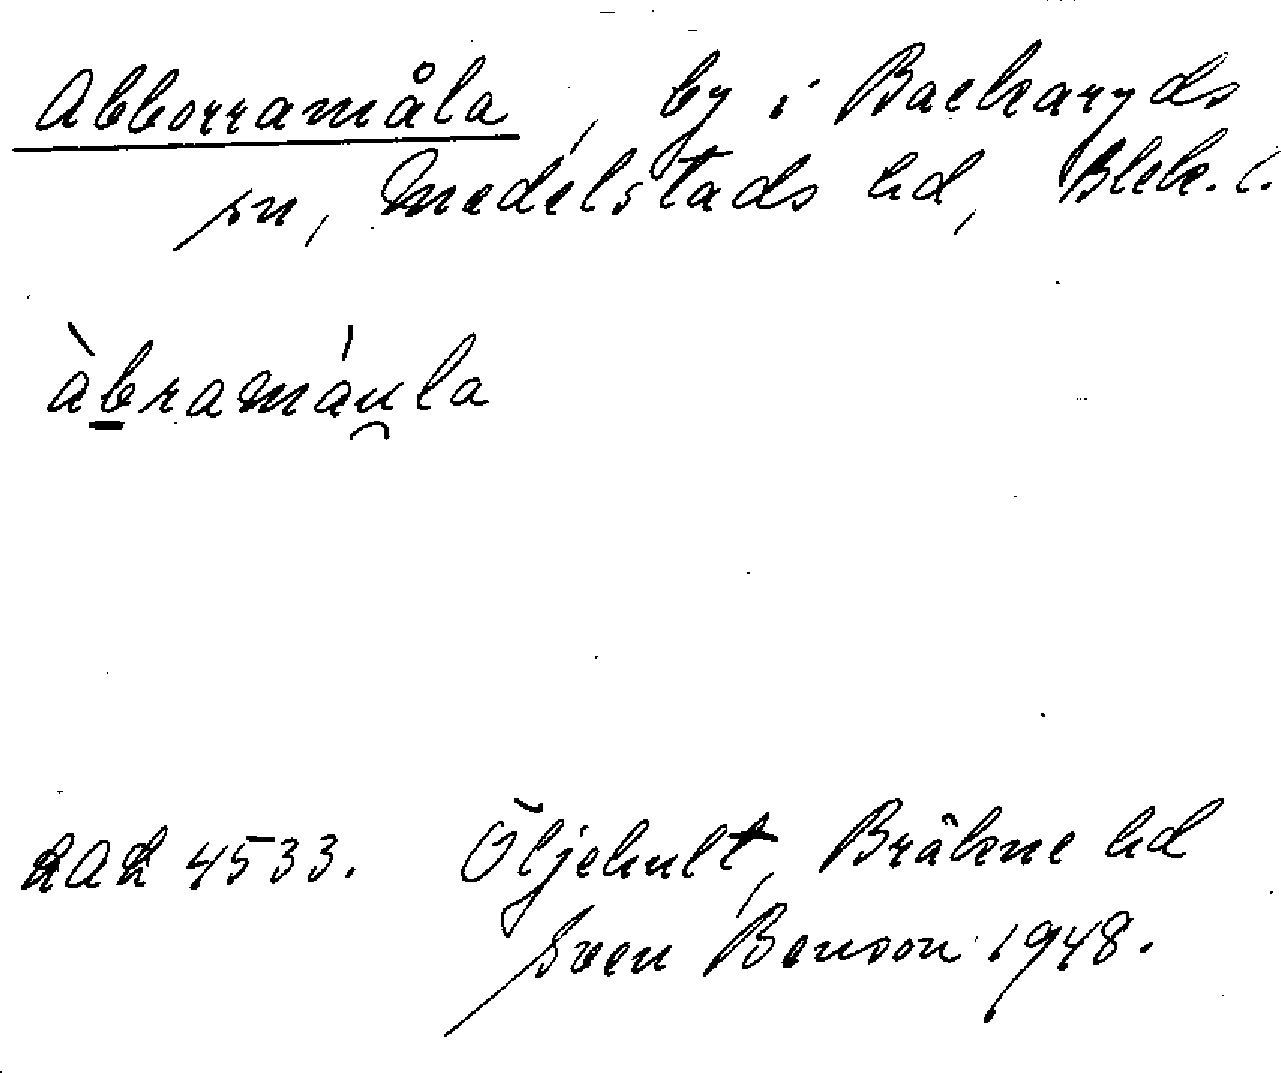 Abborramåla, by i Backaryds
sn, Medelstads hd, Blek. l.
àbramáula
LAL 4533. Öljehult, Bräkne hd
Sven Benson 1948.